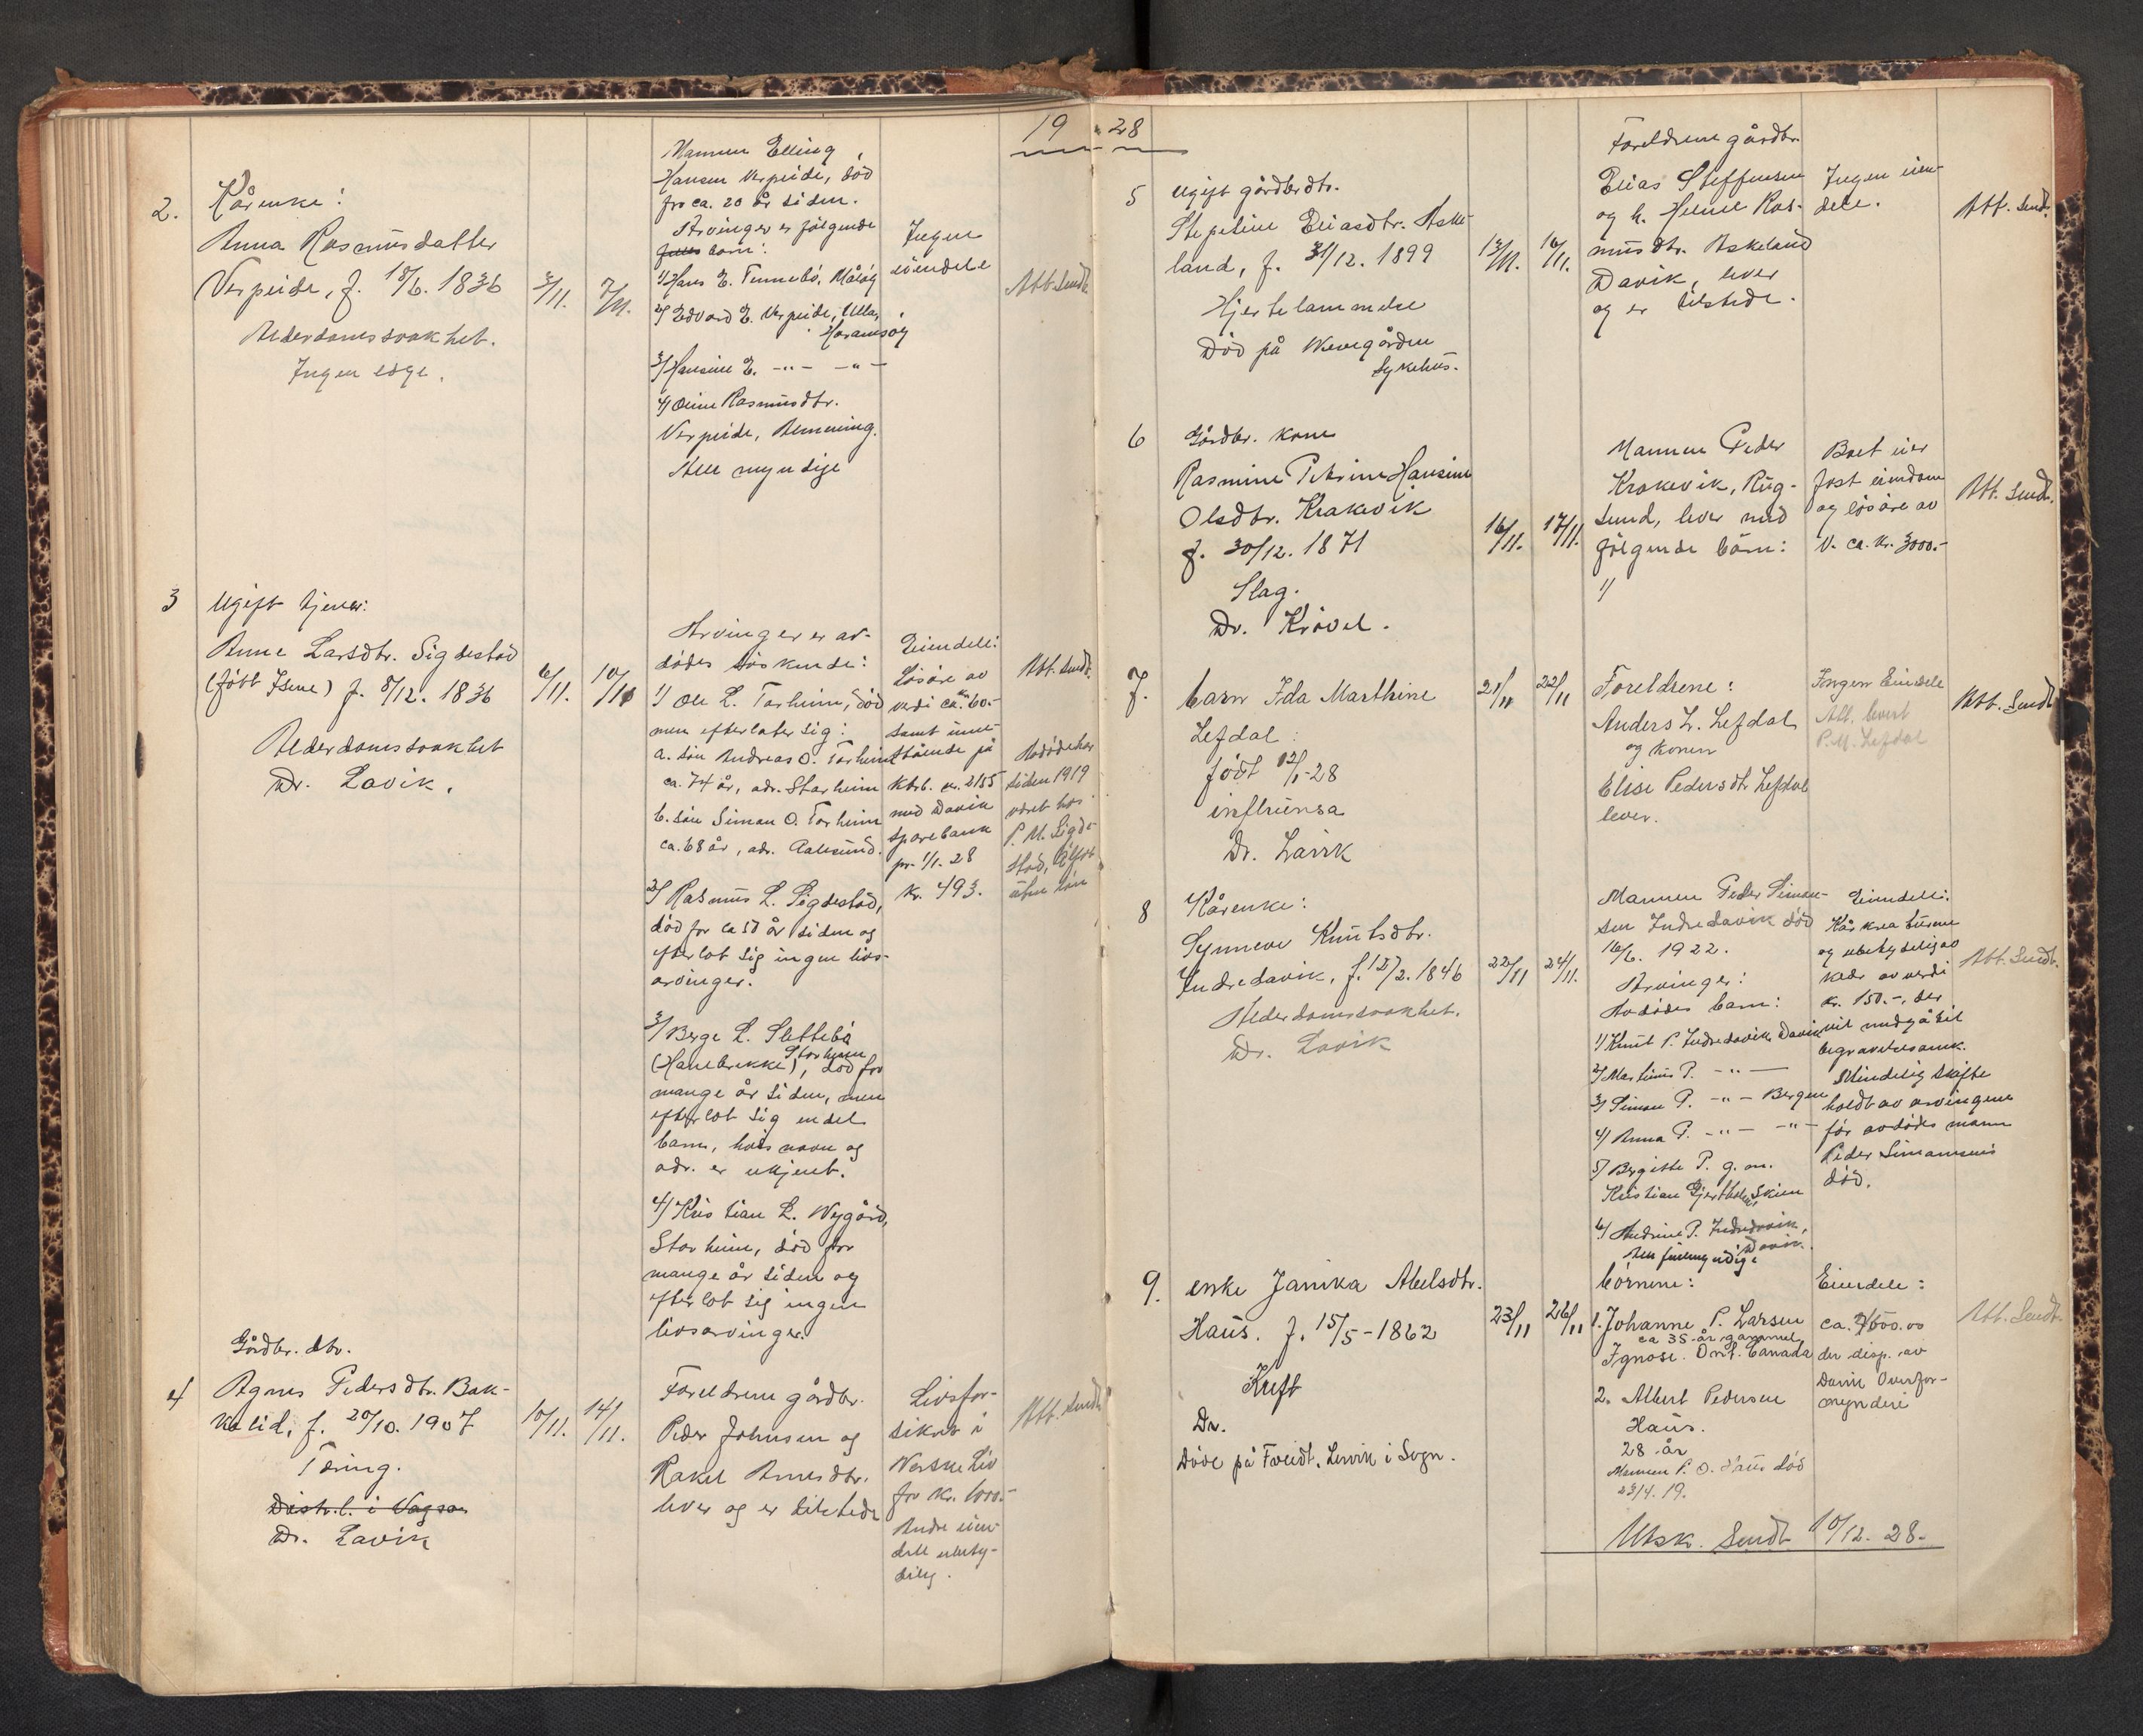 19 28
2.
Kårenke:
Anna Rasmusdatter
Verpeide, f. 18/6. 1836
Alderdomssvakhet.
Ingen læge.
3/11.
7/11.
Mannen Elling
Hansen Verpeide, død
for ca. 20 år siden.
Arvinger er følgende
barn:
1/ Hans E. Tennebö, Måløy
2/ Edvard E. Verpeide, Ulla,
Haramsøy
3/ Hansine E. -"- -"-
4/ Oline Rasmusdtr.
Verpeide, Bemining.
Alle myndige
Ingen
eiendele
Att. Sendt.
3
Ugift tjener:
Anne Larsdtr. Sigdestad
(født Isene) f. 8/12. 1836
Alderdomssvakhet
Dr. Lavik.
6/11.
10/11
Arvinger er av-
dødes søskende:
1/ Ole L. Torheim, død
men efterlater sig:
a. søn Andreas O. Torheim
ca. 74 år, adr. Starheim
b. søn Simon O. Torheim
ca. 68 år, adr. Aalesund.
2/ Rasmus L. Sigdestad,
død for ca 50 år siden og
efterlot sig ingen livs-
arvinger.
3/ Berge L. Slettebø
(Hanebrekke), Storheim død for
mange år siden, men
efterlot sig endel
barn, hvis navn og
adr. er ukjent.
4/ Kristian L. Nygård,
Starheim, død for
mange år siden og
efterlot sig ingen
livsarvinger.
Eiendele:
Løsøre av
verdi ca. kr. 60.-
samt inne-
stående på
Ktrb. nr. 2155
med Davik
sparebank
pr. 1/1. 28
kr. 493.
Att. Sendt.
Avdøde har
siden 1919
været hos
P. M. Sigde-
stad, Ålfot
uten løn
Gårdbr. dtr.
4
Agnes Pedersdtr. Bak-
kelid, f. 20/10. 1907
Tæring.
Distr.l. i Vågsø
Dr. Lavik
10/11.
14/11.
Foreldrene gårdbr.
Peder Johnsen og
Rakel Arnesdtr.
lever og er tilstede
Livsfor-
sikret i
Norske Liv
for kr. 1000.-
Andre eien-
dele ubety-
delig.
Att. Sendt
5
Ugift gårdbrdtr.
Stepeline Eliasdtr. Aske-
land, f. 31/12. 1899
Hjertelammelse
Død på Nevegården
Sykehus.
13/11.
16/11.
Foreldrene gårdbr.
Elias Steffensen
og h. Helene Ras-
musdtr. Askeland
Davik, lever
og er tilstede.
Ingen eien-
dele.
Att. Sendt.
6
Gårdbr. kone
Rasmine Petrine Hansine
Olsdtr. Krakevik
f. 30/12. 1871
Slag.
Dr. Krövel.
16/11.
17/11.
Mannen Peder
Krakevik, Rug-
sund, lever med
følgende börn:
1/
Boet eier
fast eiendom
og løsøre av
v. ca. kr. 3000.-
Att. Sendt.
7.
barn Ida Marthine
Lefdal
født 12/1-28
influensa
Dr. Lavik
21/11
22/11
Foreldrene:
Anders L. Lefdal
og konen
Elise Pedersdtr Lefdal
lever.
Ingen Eiendele
Att. levert
P. M. Lefdal
Att. Sendt
8
Kårenke:
Synneve Knutsdtr.
Indredavik, f. 15/2. 1846
Alderdomssvakhet.
Dr. Lavik
22/11
24/11.
Mannen Peder Simon-
sen Indredavik død
16/6. 1922.
Arvinger:
Avdødes barn:
1/ Knut P. Indredavik, Davik
2/ Martinus P. -"-
3/ Simon P. -"- Bergen
4/ Anna P. -"- -"-
5/ Birgitte P. g. m.
Kristian Gjertholm, Skien
6/ Andrine P. Indredavik,
Davik.
Alle fuldmyndige
Eiendele:
Kårkreaturene
og ubetydelig av
klær av verdi
kr. 150.-, der
vil medgå til
begravelsesomk.
Mindelig skifte
holdt av arvingene
før avdødes mann
Peder Simonsens
død.
Att. Sendt.
9.
enke Janika Abelsdtr.
Haus. f. 15/5-1862
Kreft
Dr.
Døde på Foreidt. Leirvik i Sogn.
23/11
26/11
börnene:
1. Johanne P. Larsen
ca 35 år gammel
Ignose. Ont. Canada
2. Albert Pedersen
Haus.
28 år
Mannen P. O. Haus død
23/4. 19.
Eiendele:
ca. 500.00
der disp. av
Davik Overfor-
mynderi
Att. Sendt.
Utsk. Sendt 10/12. 28.